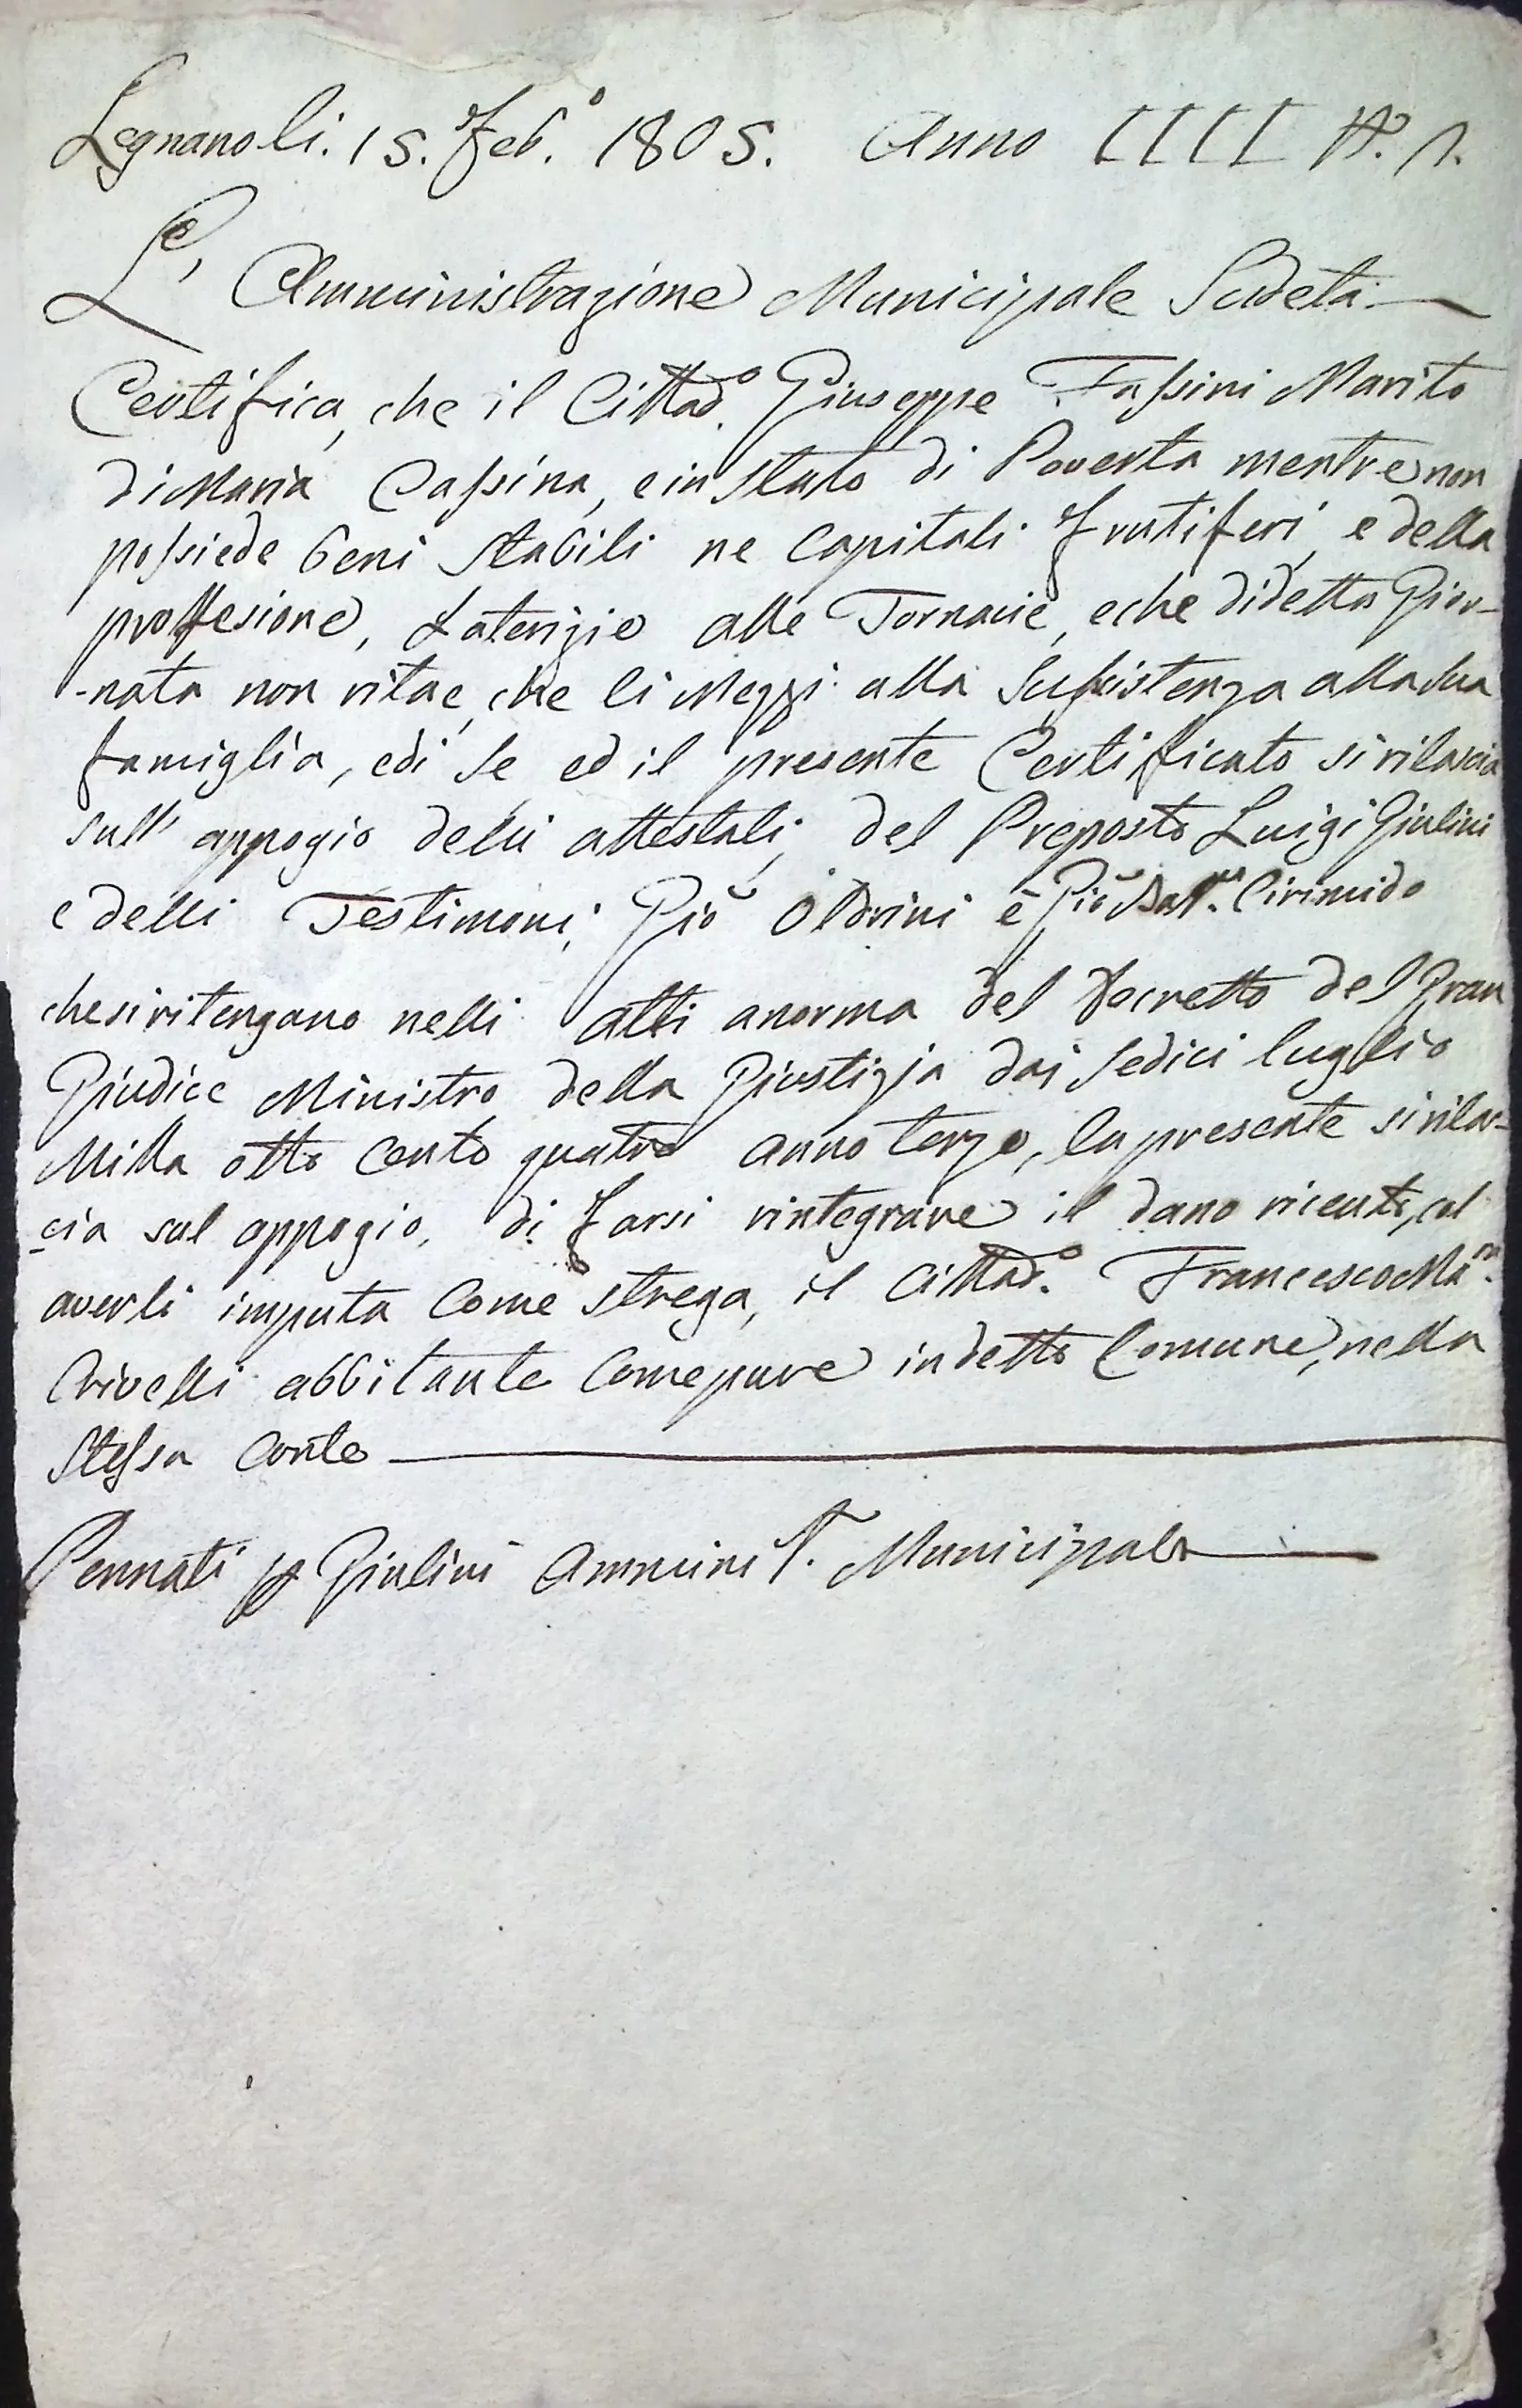 Legnano li. 15. Feb.º 1805. Anno IIII R. I.
L' Amministrazione Municipale Sudeta
Certifica, che il Cittad.º Giuseppe Fassini Marito
di Maria Cassina, e in Stato di Poverta mentre non
possiede beni Stabili ne Capitali frutiferi, e della
proffesione, Laterizio alle Fornacie, e che di detta Gior-
-nata non ritae, che li Mezzi alla Sussistenza alla Sua
famiglia, e di Se ed il presente Certificato si rilascia
sull' appogio delli attestati, del Preposto Luigi Giulini
e delli Testimoni; Gio Oldrini è Gio Batt.ª Cirimido
che si ritengano nelli atti a norma del Decretto del Gran
Giudice Ministro della Giustizia dai Sedici luglio
Milla otto Cento quatro anno terzo, la presente si rilas-
cia sul appogio, di farsi rintegrare il dano riceuto, col
averli imputa Come strega, il Cittad.º Francesco Mª.
Crivelli abbitante Come pure in detto Comune, nella
Stessa Corte
Pennati pr Giulini Amminist. Municipale